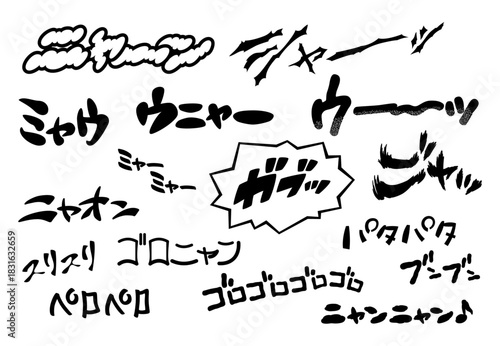 ニャーン
シャーッ
ミャウ
ウニャー
ウーッ
ミャー
ミャー
ガブッ
ニャオン
パタパタ
スリスリ
ゴロニャン
ブンブン
ペロペロ
ゴロゴロゴロゴロ
ニャンニャン♪
Adobe Stock | #1831632659